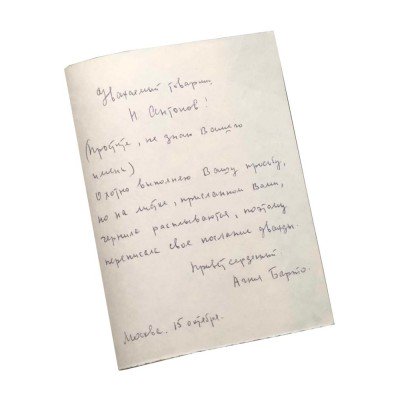 Уважаемый товарищ
Н. Антонов!
(Простите, не знаю Вашего
имени)
Охотно выполняю Вашу просьбу,
но на листке, присланном Вами,
чернила расплываются, поэтому
переписала свое послание дважды.
Привет сердечный
Агния Барто.
Москва, 15 октября.